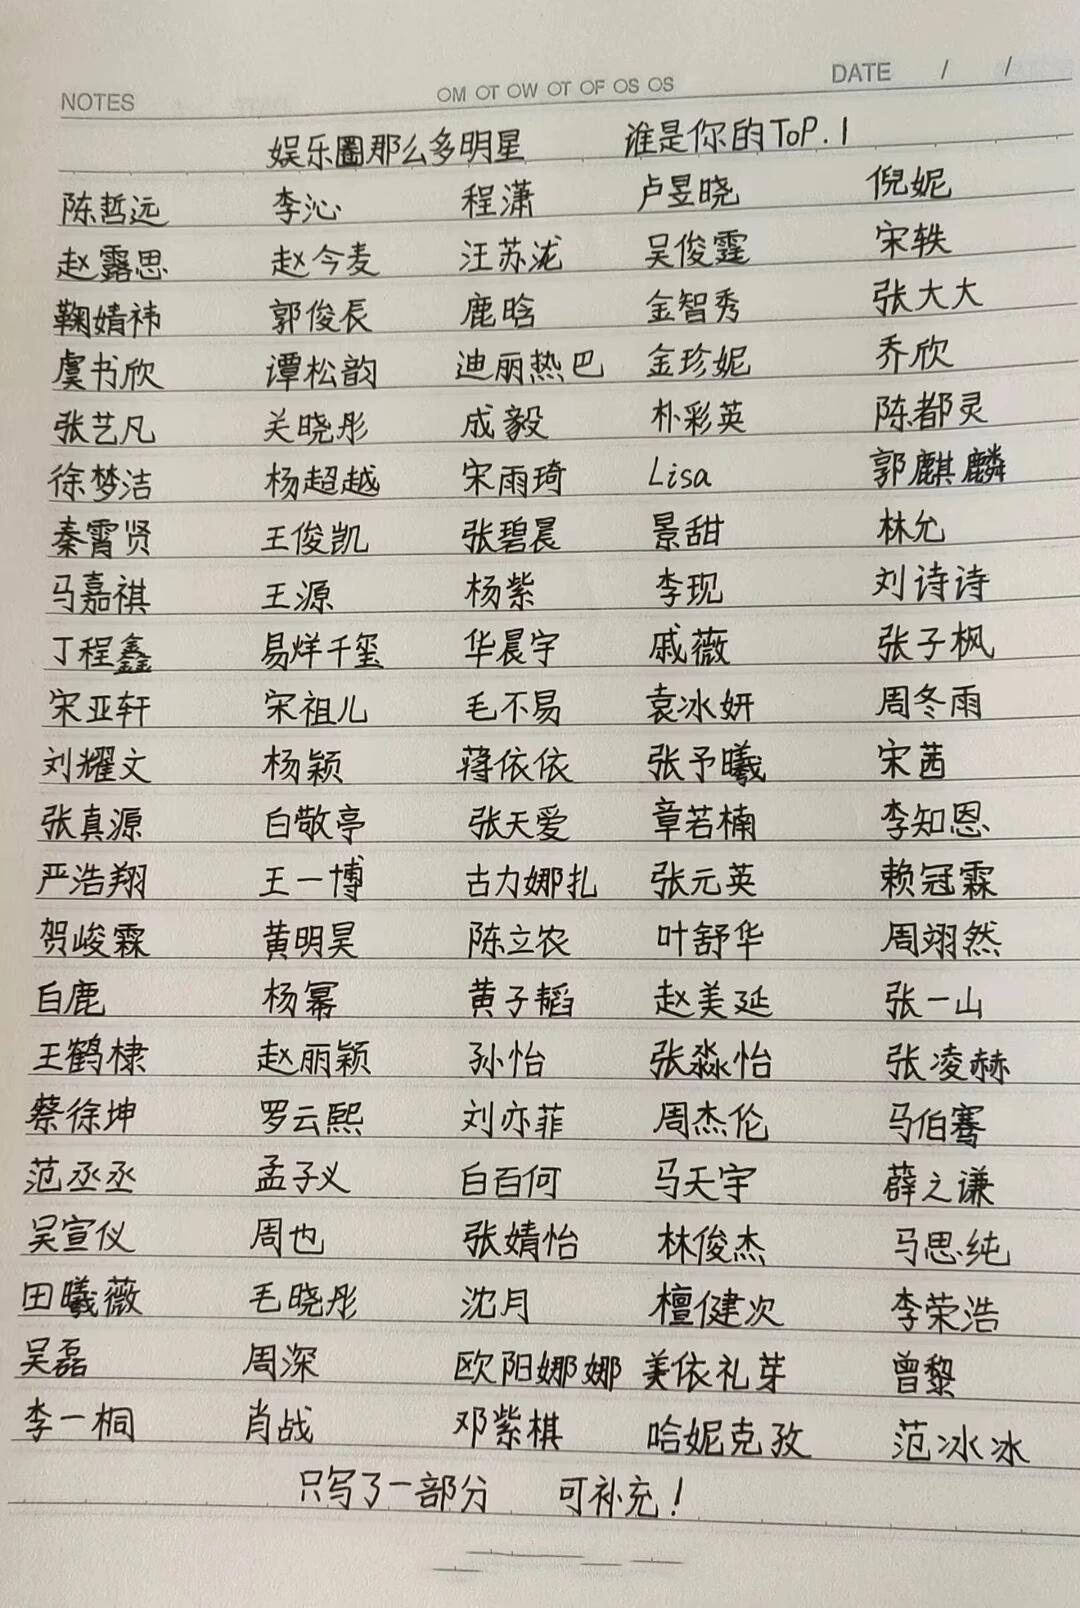 NOTES OM OT OW OT OF OS OS DATE / /
娱乐圈那么多明星 谁是你的ToP.1
陈哲远 李沁 程潇 卢昱晓 倪妮
赵露思 赵今麦 汪苏泷 吴俊霆 宋轶
鞠婧祎 郭俊辰 鹿晗 金智秀 张大大
虞书欣 谭松韵 迪丽热巴 金珍妮 乔欣
张艺凡 关晓彤 成毅 朴彩英 陈都灵
徐梦洁 杨超越 宋雨琦 Lisa 郭麒麟
秦霄贤 王俊凯 张碧晨 景甜 林允
马嘉祺 王源 杨紫 李现 刘诗诗
丁程鑫 易烊千玺 华晨宇 戚薇 张子枫
宋亚轩 宋祖儿 毛不易 袁冰妍 周冬雨
刘耀文 杨颖 蒋依依 张予曦 宋茜
张真源 白敬亭 张天爱 章若楠 李知恩
严浩翔 王一博 古力娜扎 张元英 赖冠霖
贺峻霖 黄明昊 陈立农 叶舒华 周翊然
白鹿 杨幂 黄子韬 赵美延 张一山
王鹤棣 赵丽颖 孙怡 张淼怡 张凌赫
蔡徐坤 罗云熙 刘亦菲 周杰伦 马伯骞
范丞丞 孟子义 白百何 马天宇 薛之谦
吴宣仪 周也 张婧怡 林俊杰 马思纯
田曦薇 毛晓彤 沈月 檀健次 李荣浩
吴磊 周深 欧阳娜娜 美依礼芽 曾黎
李一桐 肖战 邓紫棋 哈妮克孜 范冰冰
只写了一部分 可补充！